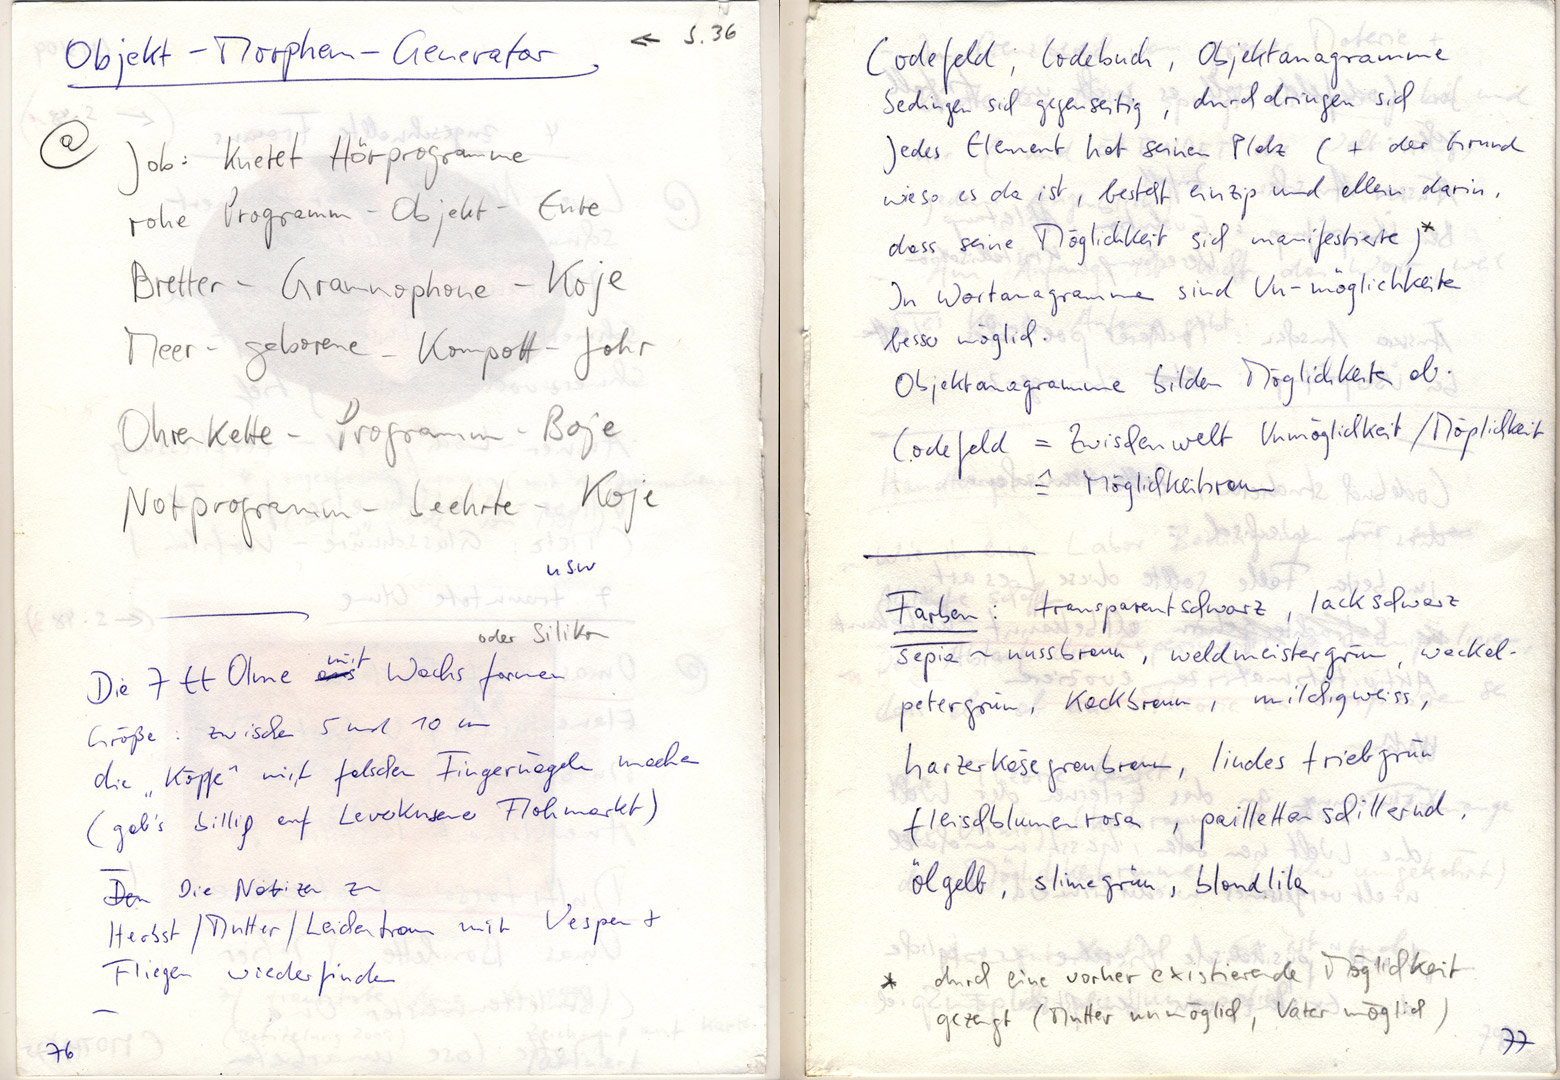 Objekt-Morphem-Generator
← S.36
@
Job: Knetet Hörprogramme
rohe Programm-Objekt-Ente
Bretter-Grammophone-Koje
Meer-geborene-Kompott-Johr
Ohrenkette-Programm-Boje
Notprogramm-beehrte-Koje
usw
oder Silikon
Die 7 tt Ohme mit Wachs formen
Größe: zwischen 5 und 10 cm
die „Köpfe" mit falschen Fingernägeln machen
(gab's billig auf Leverkusener Flohmarkt)
Den Die Notizen zu
Herbst/Mutter/Leichentraum mit Vespen +
Fliegen wiederfinden
76
Codefeld, Codebuch, Objektanagramme
bedingen sich gegenseitig, durchdringen sich
Jedes Element hat seinen Platz (+ der Grund
wieso es da ist, besteht einzig und allein darin,
dass seine Möglichkeit sich manifestierte)*
In Wortanagramme sind Un-möglichkeiten
besser möglich.
Objektanagramme bilden Möglichkeiten ab.
Codefeld = Zwischenwelt Unmöglichkeit/Möglichkeit
≙ Möglichkeitsraum
Farben: transparentschwarz, lackschwarz
sepia - nussbraun, waldmeistergrün, wackel-
petergrün, Kackbraun, milchigweiss,
harzerkäsegraubraun, lindes triebgrün
fleischblumenrosa, paillettenschillernd,
ölgelb, slimegrün, blondlila
* durch eine vorher existierende Möglichkeit
gezeugt (Mutter unmöglich, Vater möglich)
77